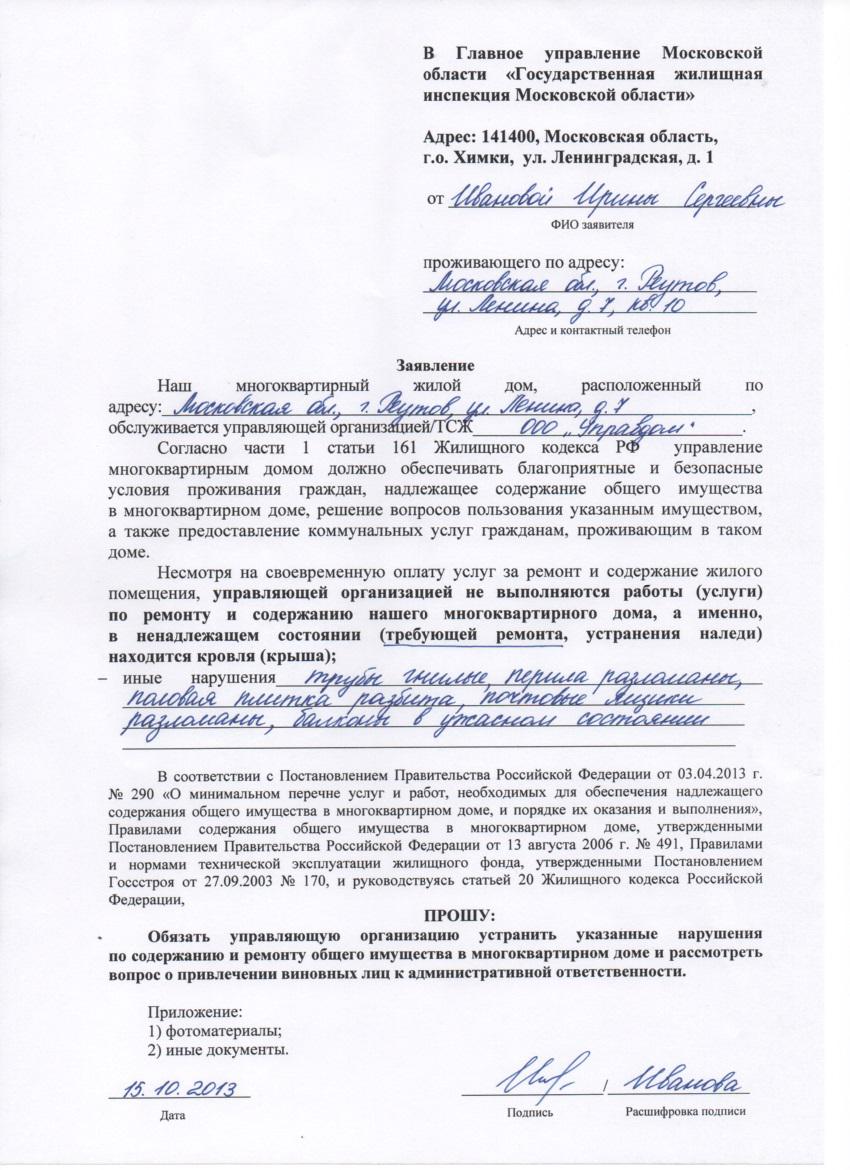 В Главное управление Московской
области «Государственная жилищная
инспекция Московской области»
Адрес: 141400, Московская область,
г.о. Химки, ул. Ленинградская, д. 1
от Ивановой Ирины Сергеевны
ФИО заявителя
проживающего по адресу:
Московская обл., г. Реутов,
ул. Ленина, д. 7, кв. 10
Адрес и контактный телефон
Заявление
Наш многоквартирный жилой дом, расположенный по
адресу: Московская обл., г. Реутов, ул. Ленина, д. 7 ,
обслуживается управляющей организацией/ТСЖ ООО „Управдом" .
Согласно части 1 статьи 161 Жилищного кодекса РФ управление
многоквартирным домом должно обеспечивать благоприятные и безопасные
условия проживания граждан, надлежащее содержание общего имущества
в многоквартирном доме, решение вопросов пользования указанным имуществом,
а также предоставление коммунальных услуг гражданам, проживающим в таком
доме.
Несмотря на своевременную оплату услуг за ремонт и содержание жилого
помещения, управляющей организацией не выполняются работы (услуги)
по ремонту и содержанию нашего многоквартирного дома, а именно,
в ненадлежащем состоянии (требующей ремонта, устранения наледи)
находится кровля (крыша);
– иные нарушения трубы гнилые, перила разломаны,
половая плитка разбита, почтовые ящики
разломаны, балконы в ужасном состоянии
В соответствии с Постановлением Правительства Российской Федерации от 03.04.2013 г.
№ 290 «О минимальном перечне услуг и работ, необходимых для обеспечения надлежащего
содержания общего имущества в многоквартирном доме, и порядке их оказания и выполнения»,
Правилами содержания общего имущества в многоквартирном доме, утвержденными
Постановлением Правительства Российской Федерации от 13 августа 2006 г. № 491, Правилами
и нормами технической эксплуатации жилищного фонда, утвержденными Постановлением
Госсстроя от 27.09.2003 № 170, и руководствуясь статьей 20 Жилищного кодекса Российской
Федерации,
ПРОШУ:
Обязать управляющую организацию устранить указанные нарушения
по содержанию и ремонту общего имущества в многоквартирном доме и рассмотреть
вопрос о привлечении виновных лиц к административной ответственности.
Приложение:
1) фотоматериалы;
2) иные документы.
15.10.2013 / Иванова
Дата Подпись Расшифровка подписи